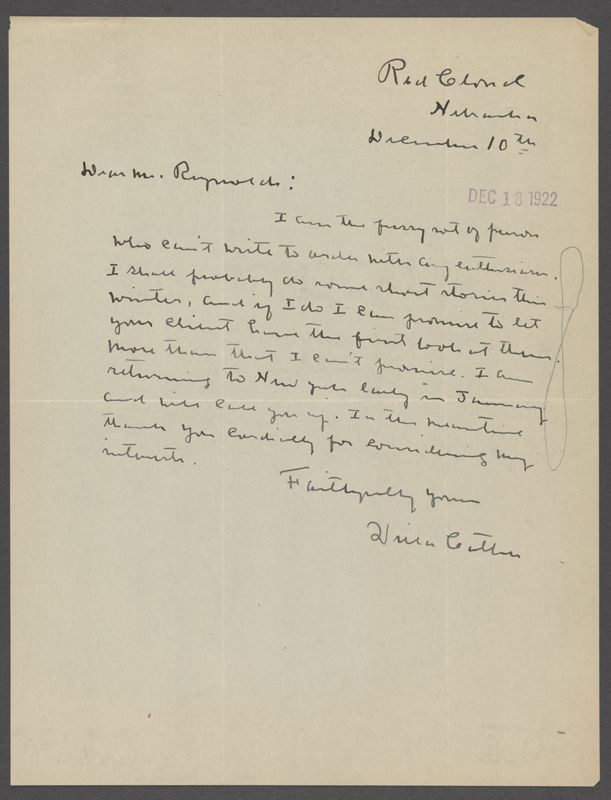 Red Cloud
Nebraska
December 10th
Dear Mr. Reynolds:
DEC 13 1922
I am the fussy sort of person
who can't write to order with any enthusiasm.
I shall probably do some short stories this
winter, and if I do I can promise to let
your client have the first look at them.
more than that I can't promise. I am
returning to New York early in January
and will call you up. In the meantime
thank you cordially for considering my
interests.
Faithfully yours
Willa Cather